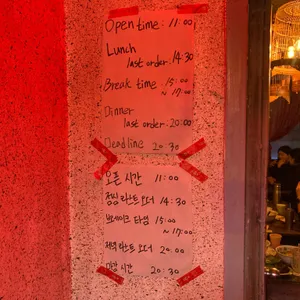 Open time : 11:00
Lunch
last order . 14:30
Break time . 15:00
~ 17:00
Dinner
last order . 20:00
Deadline 20:30
오픈 시간 11:00
점심 라스트 오더 14:30
브레이크 타임 15:00
~ 17:00
저녁 라스트 오더 20:00
마감 시간 20:30